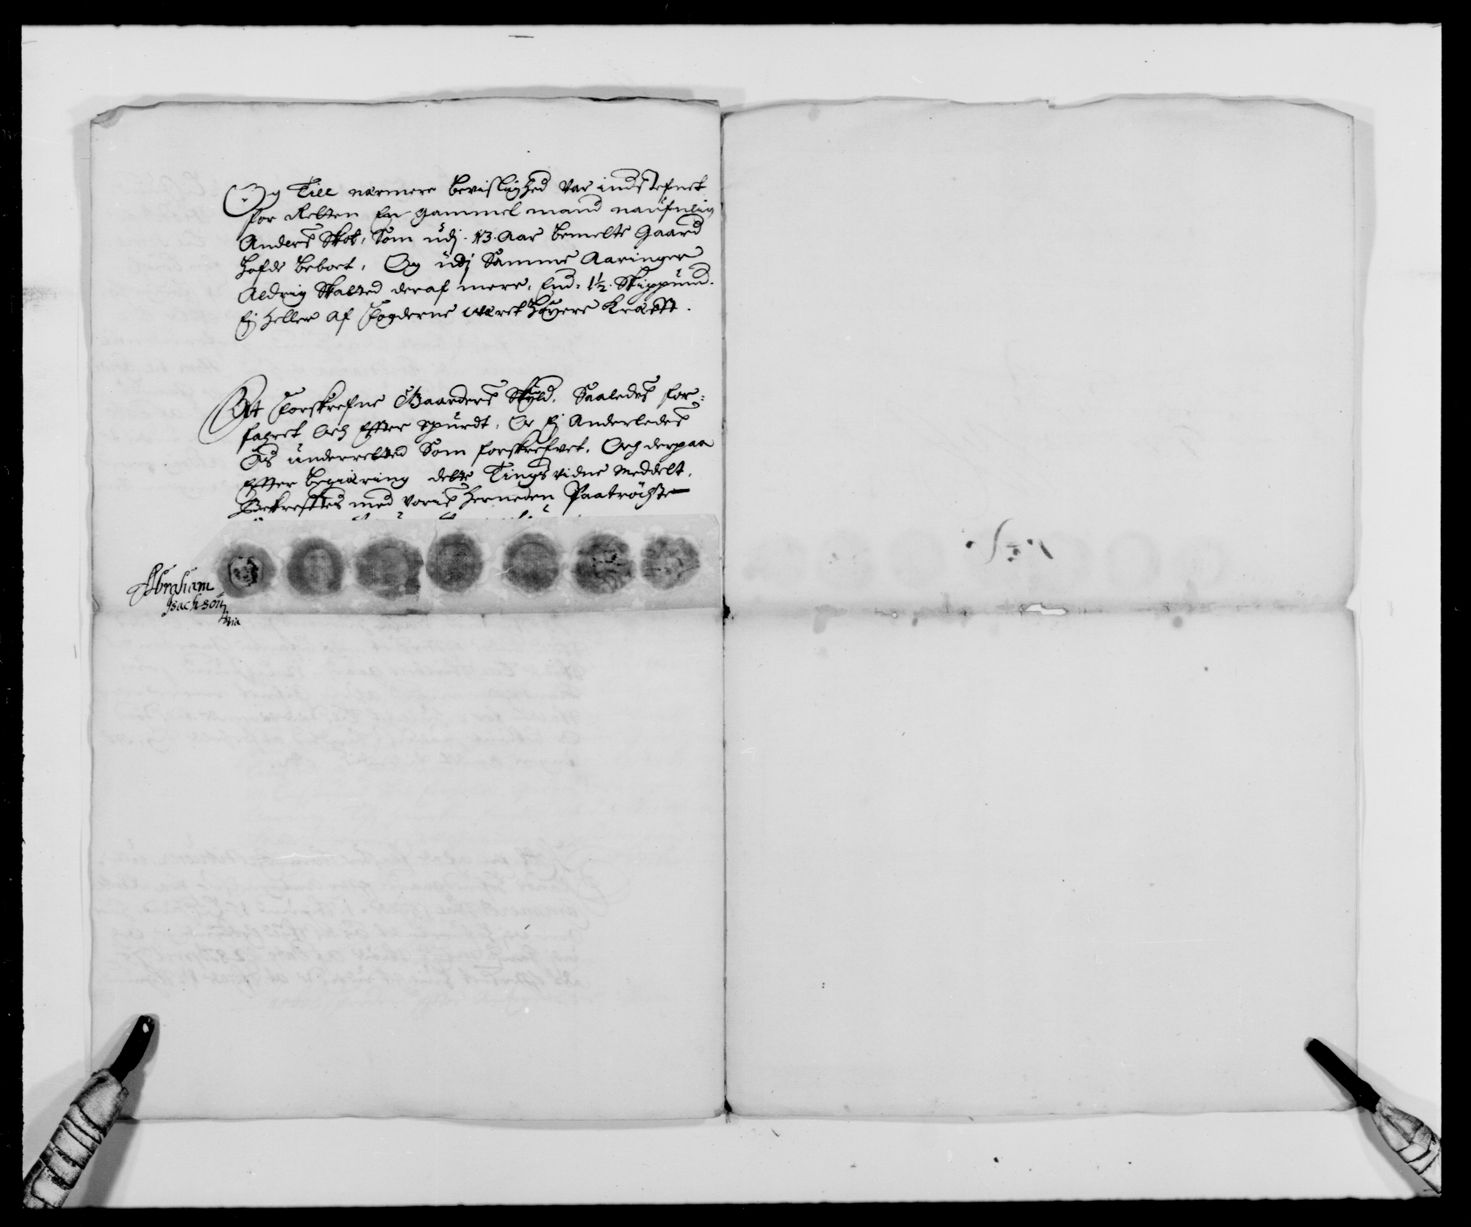 Og Till nærmere bevislighed var indstefnet
for Retten En gammel mand naufnlig
Anders Skot, Som udj 13 Aar bemelte Gaard
hafde beboet, Og udj Samme Aaringer
Aldrig Skatted deraf mere, End 1½ Skippund.
Ej heller af fogderne været høyere Kræfft.
At forskrefne Gaarders Skyld, Saaledes for-
faret Och Effter spurdt, Er Ej Anderledes
Os underretted Som forskrefvet, Och derpaa
Effter begiæring dette Tings vidne Meddelt,
Bekrefftes med vores herneden Paatröchte
Abraham
Isachsøn